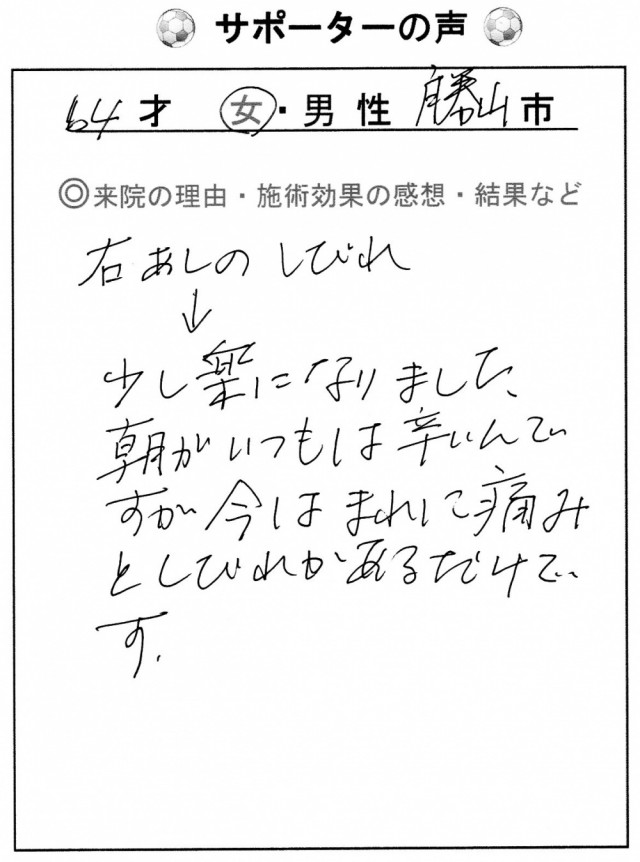 サポーターの声
64才 女・男性 勝山市
◎来院の理由・施術効果の感想・結果など
右あしのしびれ
↓
少し楽になりました、
朝がいつもは辛いんで
すが今はまれに痛み
としびれがあるだけで
す.